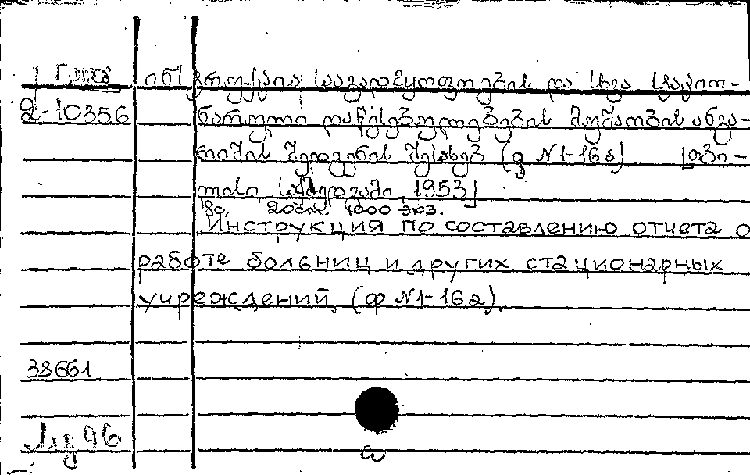 ინსტრუქცია საავადმყოფოების და სხვა სტაციო-
2-10356 ნარული დაწესებულებების მუშაობის ანგა-
რიშის შედგენის შესახებ (ფ N1-16ა) [თბი-
ლისი, 1953]
20 სმ. 1000 экз.
Инструкция по составлению отчета о
работе больниц и других стационарных
учреждений. (ф N1-16а).
38661